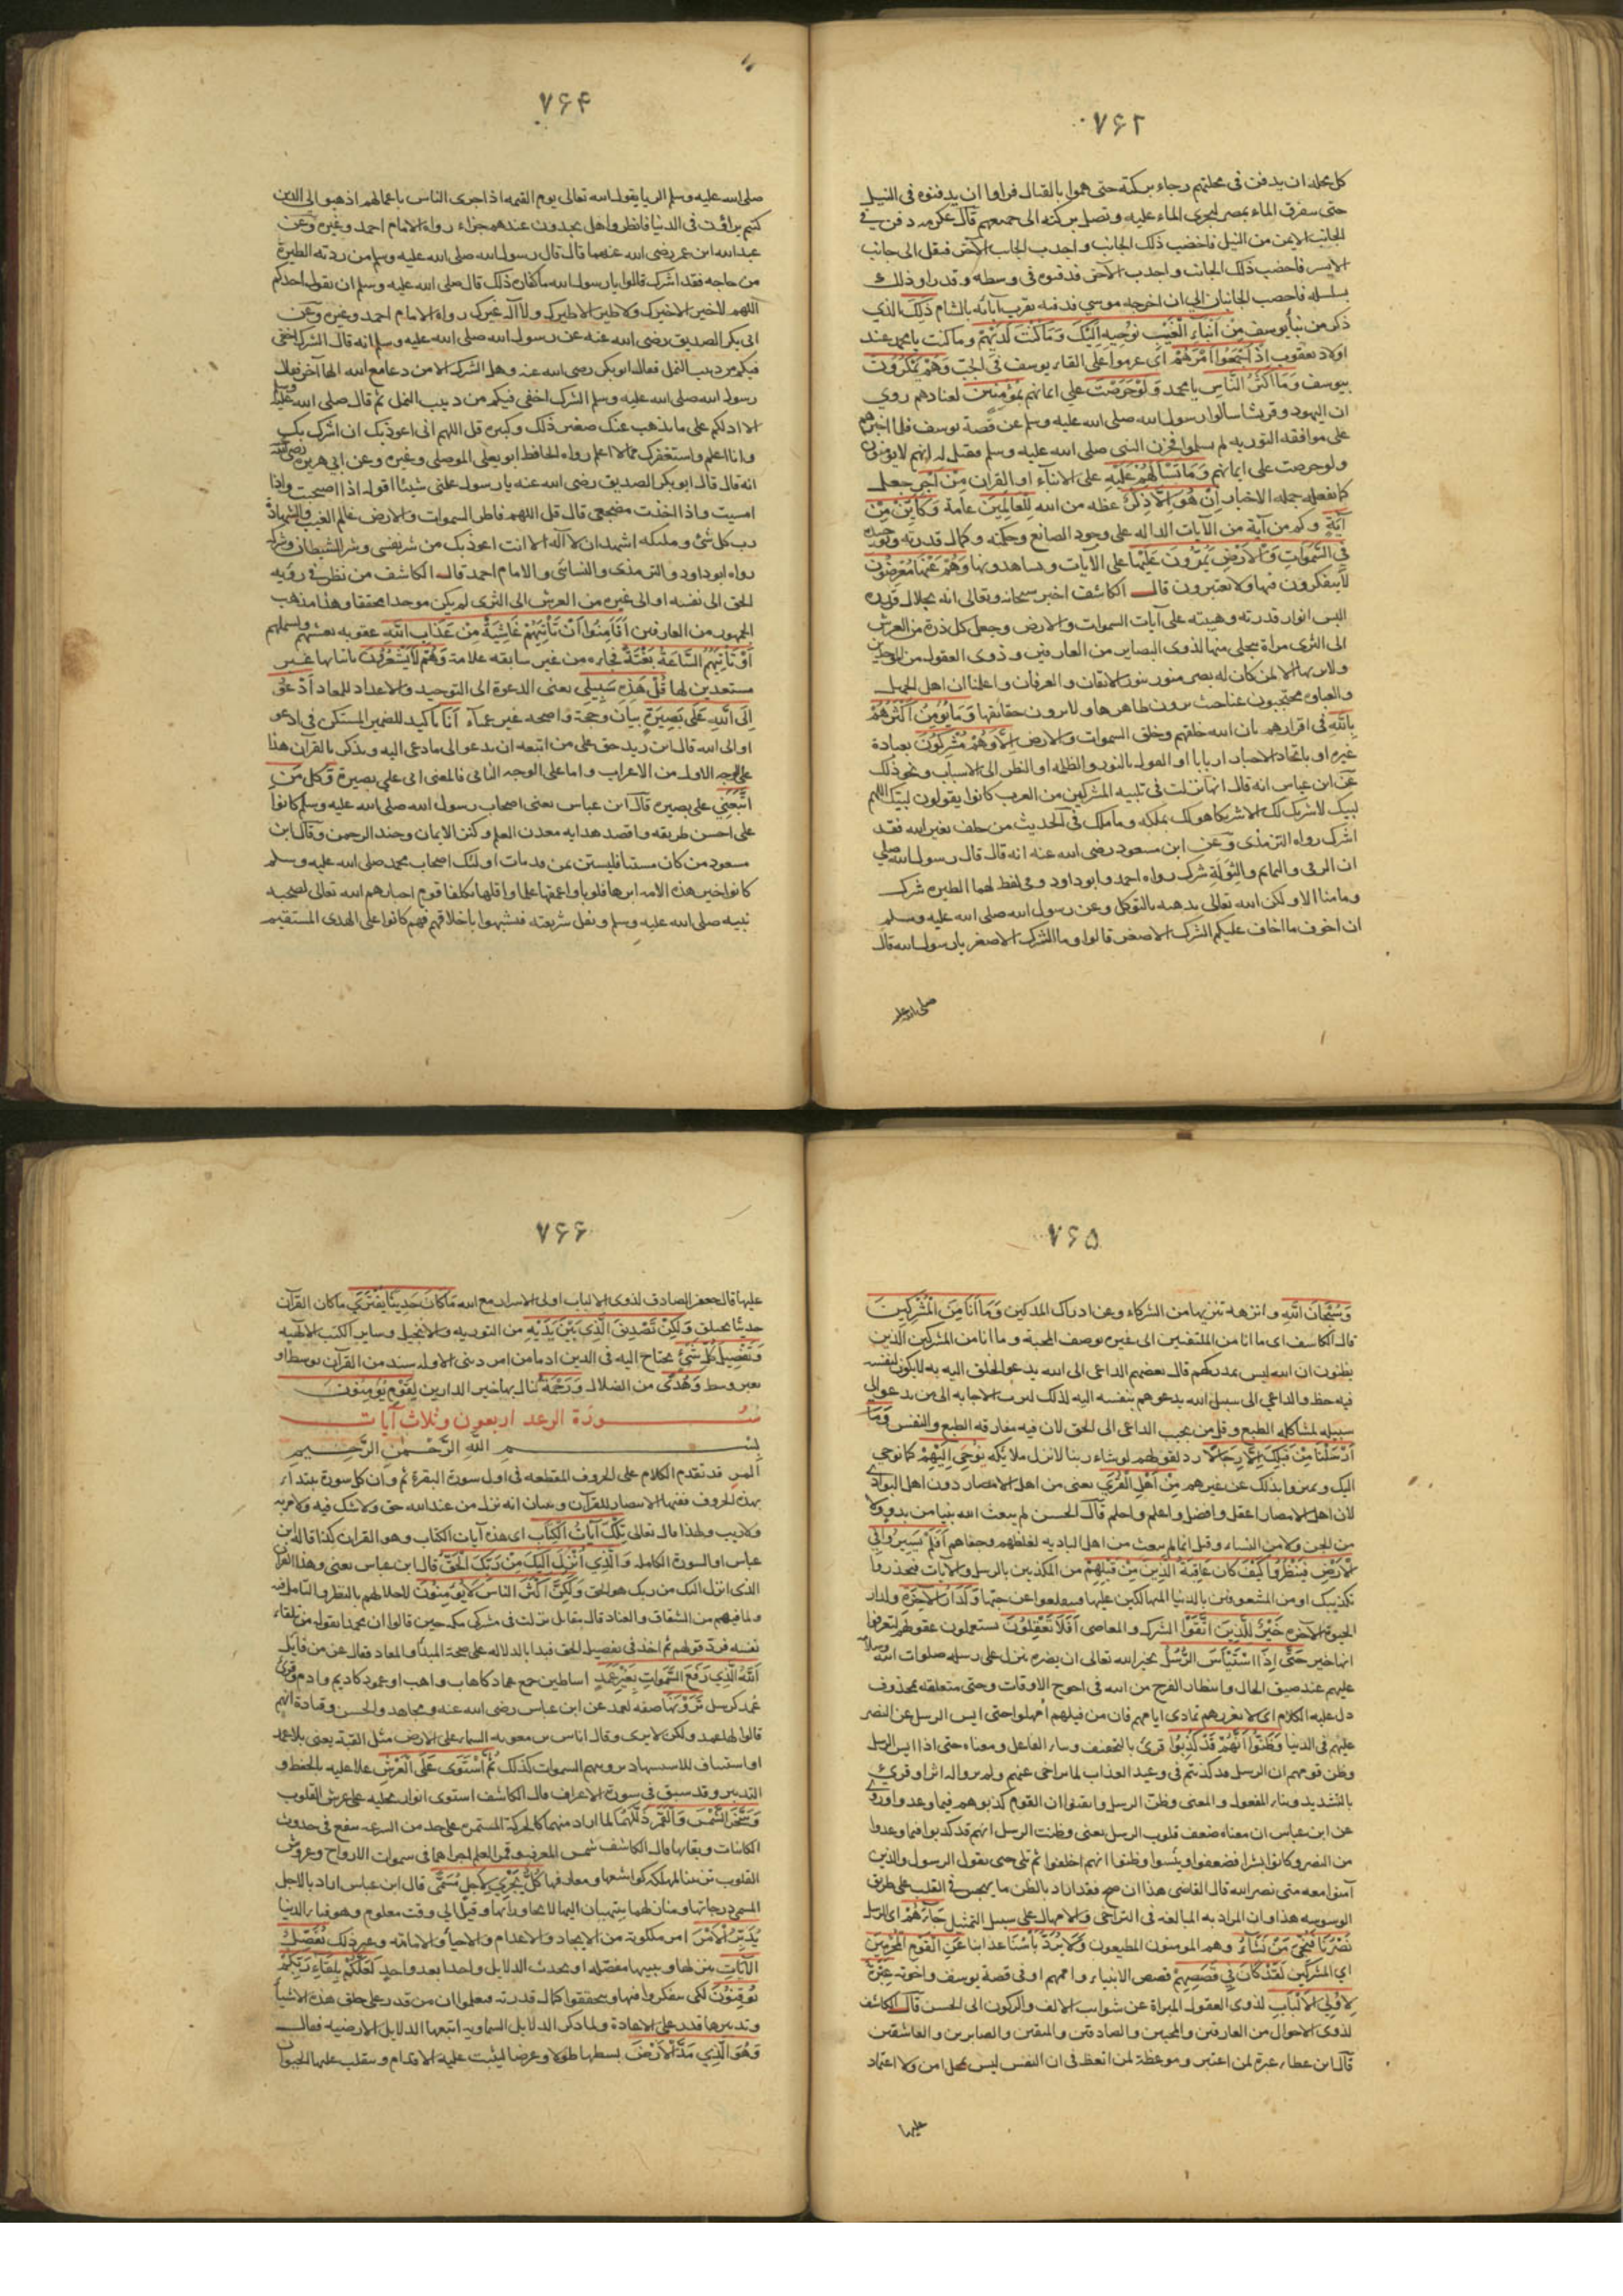 ۷۶۲
كل محلة ان يدفن في محلتهم رجاء بركته حتى هموا بالقتال فراوا ان يدفنوه في النيل
حتى يتفرق الماء بمصر ليجرى الماء عليه وتصل بركته الى جميعهم قال عكرمه دفن في
الجانب الايمن من النيل فاخضب ذلك الجانب واجدب الجانب الآخر فنقل الى جانب
الايسر فاخضب ذلك الجانب واجدب الآخر فدفنوه في وسطه وقدروا ذلك
بسلسلة فاخصب الجانبان الى ان اخرجه موسى فدفنه بقرب آبائه بالشام ذلك الذي
ذكر من نبأ يوسف مِنْ أَنْبَاءِ الْغَيْبِ نُوحِيهِ إِلَيْكَ وَمَا كُنْتَ لَدَيْهِمْ وما كنت يا محمد عند
اولاد يعقوب إِذْ أَجْمَعُوا أَمْرَهُمْ اى عزموا على القاء يوسف في الجب وَهُمْ يَمْكُرُونَ
بيوسف وَمَا أَكْثَرُ النَّاسِ يا محمد وَلَوْ حَرَصْتَ على ايمانهم بِمُؤْمِنِينَ لعنادهم روى
ان اليهود وقريشا سألوا رسول الله صلى الله عليه وسلم عن قصة يوسف فلما اخبرهم
على موافقة التورية لم يسلموا فحزن النبي صلى الله عليه وسلم فقيل له انهم لا يؤمنون
ولو حرصت على ايمانهم وَمَا تَسْأَلُهُمْ عَلَيْهِ على الانباء او القرآن مِنْ أَجْرٍ جعل
كما يفعله حملة الاخبار إِنْ هُوَ إِلَّا ذِكْرٌ عظة من الله لِلْعَالَمِينَ عامة وَكَأَيِّنْ مِنْ
آيَةٍ وكم من آية من الآيات الدالة على وجود الصانع وحكمته وكمال قدرته وتوحيده
فِي السَّمَوَاتِ وَالْأَرْضِ يَمُرُّونَ عَلَيْهَا على الآيات ويشاهدونها وَهُمْ عَنْهَا مُعْرِضُونَ
لا يتفكرون فيها ولا يعتبرون قال الكاشف اخبر سبحانه وتعالى انه بجلال قدره
البس انوار قدرته وهيبته على آيات السموات والارض وجعل كل ذرة من العرش
الى الثرى مرآة يتجلى منها لذوى البصاير من العارفين وذوى العقول من الموحدين
ولا يراها الا لمن كان له بصر منور بنور الايقان والعرفان واعلمنا ان اهل الجهل
والغباوة محتجبون عنا حيث يرون ظاهرها ولا يرون حقائقها وَمَا يُؤْمِنُ أَكْثَرُهُمْ
بِاللَّهِ في اقرارهم بان الله خلقهم وخلق السموات والارض إِلَّا وَهُمْ مُشْرِكُونَ بعبادة
غيره او باتخاذ الاحبار اربابا او القول بالنور والظلمة او النظر الى الاسباب ونحو ذلك
عن ابن عباس انه قال انها نزلت في تلبية المشركين من العرب كانوا يقولون لبيك اللهم
لبيك لا شريك لك الا شريكا هو لك تملكه وما ملك في الحديث من حلف بغير الله فقد
اشرك رواه الترمذى وعن ابن مسعود رضى الله عنه انه قال قال رسول الله صلى
ان الرقى والتمايم والتولة شرك رواه احمد وابو داود وفي لفظ لهما الطيرة شرك
وما منا الا ولكن الله تعالى يذهبه بالتوكل وعن رسول الله صلى الله عليه وسلم
ان اخوف ما اخاف عليكم الشرك الاصغر قالوا وما الشرك الاصغر يا رسول الله قال
صلى الله عليه
۷۶۴
صلى الله عليه وسلم الريا يقول الله تعالى يوم القيمة اذا جزى الناس باعمالهم اذهبوا الى الذين
كنتم تراؤن في الدنيا فانظروا هل تجدون عندهم جزاء رواه الامام احمد وغيره وعن
عبد الله ابن عمر رضى الله عنهما قال قال رسول الله صلى الله عليه وسلم من ردته الطيرة
من حاجة فقد اشرك قالوا يا رسول الله ما كفارة ذلك قال صلى الله عليه وسلم ان يقول احدكم
اللهم لا خير الا خيرك ولا طير الا طيرك ولا اله غيرك رواه الامام احمد وغيره وعن
ابى بكر الصديق رضى الله عنه عن رسول الله صلى الله عليه وسلم انه قال الشرك اخفى
فيكم من دبيب النمل فقال ابو بكر رضى الله عنه وهل الشرك الا من دعا مع الله الها آخر فقال
رسول الله صلى الله عليه وسلم الشرك اخفى فيكم من دبيب النمل ثم قال صلى الله عليه وسلم
الا ادلكم على ما يذهب عنك صغير ذلك وكبيره قل اللهم انى اعوذ بك ان اشرك بك
وانا اعلم واستغفرك مما لا اعلم رواه الحافظ ابو يعلى الموصلى وغيره وعن ابى هريرة رضى الله عنه
انه قال قال ابو بكر الصديق رضى الله عنه يا رسول علمنى شيئا اقوله اذا اصبحت واذا
امسيت واذا اخذت مضجعى قال قل اللهم فاطر السموات والارض عالم الغيب والشهادة
رب كل شئ ومليكه اشهد ان لا اله الا انت اعوذ بك من شر نفسى وشر الشيطان وشركه
رواه ابو داود والترمذى والنسائى والامام احمد قال الكاشف من نظر في رؤيه
الحق الى نفسه او الى غيره من العرش الى الثرى لم يكن موحدا محققا وهذا مذهب
الجمهور من العارفين أَفَأَمِنُوا أَنْ تَأْتِيَهُمْ غَاشِيَةٌ مِنْ عَذَابِ اللَّهِ عقوبه تغشيهم وتشملهم
أَوْ تَأْتِيَهُمُ السَّاعَةُ بَغْتَةً فجاءة من غير سابقة علامة وَهُمْ لَا يَشْعُرُونَ باتيانها غير
مستعدين لها قُلْ هَذِهِ سَبِيلِي يعنى الدعوة الى التوحيد والاعداد للمعاد أَدْعُو
إِلَى اللَّهِ عَلَى بَصِيرَةٍ بيان وحجة واضحه غير عمياء أَنَا تأكيد للضمير المستكن في ادعو
او الى الله قال ابن زيد حق على من اتبعه ان يدعو الى ما دعى اليه ويذكر بالقرآن هذا
على الوجه الاول من الاعراب واما على الوجه الثانى فالمعنى انى على بصيرة وكل مَنِ
اتَّبَعَنِي على بصيره قال ابن عباس يعنى اصحاب رسول الله صلى الله عليه وسلم كانوا
على احسن طريقه واقصد هدايه معدن العلم وكنز الايمان وجند الرحمن وقال ابن
مسعود من كان مستنا فليستن بمن قد مات اولئك اصحاب محمد صلى الله عليه وسلم
كانوا خير هذه الامة ابرها قلوبا واعمقها علما واقلها تكلفا قوم اختارهم الله تعالى لصحبه
نبيه صلى الله عليه وسلم ونقل شريعته فتشبهوا باخلاقهم فهم كانوا على الهدى المستقيم
۷۶۵
وَسُبْحَانَ اللَّهِ وانزهه تنزيها من الشركاء وعن ادراك المدركين وَمَا أَنَا مِنَ الْمُشْرِكِينَ
قال الكاشف اى ما انا من الملتفتين الى غيره بوصف المحبة وما انا من المشركين الذين
يظنون ان الله ليس بمدركهم قال بعضهم الداعى الى الله يدعو الخلق اليه به لا يكون لنفسه
فيه حظ والداعى الى سبيل الله يدعوهم بنفسه اليه لذلك كثرت الاجابة الى من يدعو الى
سبيله لمشاكلة الطبع وقل من يجيب الداعى الى الحق لان فيه مفارقه الطبع والنفس وَمَا
أَرْسَلْنَا مِنْ قَبْلِكَ إِلَّا رِجَالًا رد لقولهم لو شاء ربنا لانزل ملائكة نُوحِي إِلَيْهِمْ كما نوحى
اليك وتميزوا بذلك عن غيرهم مِنْ أَهْلِ الْقُرَى يعنى من اهل الامصار دون اهل البوادى
لان اهل الامصار اعقل وافضل واعلم واحلم قال الحسن لم يبعث الله نبيا من بدو ولا
من الجن ولا من النساء وقيل انما لم يبعث من اهل البادية لغلظهم وجفاهم أَفَلَمْ يَسِيرُوا فِي
الْأَرْضِ فَيَنْظُرُوا كَيْفَ كَانَ عَاقِبَةُ الَّذِينَ مِنْ قَبْلِهِمْ من المكذبين بالرسل والآيات فيحذروا
تكذيبك او من المشعوفين بالدنيا المتهالكين عليها فيقلعوا عن حبها وَلَدَارُ الْآخِرَةِ ولدار
الحيوة الآخرة خَيْرٌ لِلَّذِينَ اتَّقَوْا الشرك والمعاصى أَفَلَا تَعْقِلُونَ تستعملون عقولهم ليعرفوا
انها خير حَتَّى إِذَا اسْتَيْأَسَ الرُّسُلُ يخبر الله تعالى ان نصره ينزل على رسله صلوات الله وسلامه
عليهم عند ضيق الحال وانتظار الفرج من الله في احوج الاوقات وحتى متعلقه بمحذوف
دل عليه الكلام اى لا يغررهم تمادى ايامهم فان من قبلهم امهلوا حتى ايس الرسل عن النصر
عليهم في الدنيا وَظَنُّوا أَنَّهُمْ قَدْ كُذِبُوا قرئ بالتخفيف وبناء الفاعل ومعناه حتى اذا ايس الرسل
وظن قومهم ان الرسل قد كذبتم في وعيد العذاب لما تراخى عنهم ولم يروا له اثرا وقرئ
بالتشديد وبناء المفعول والمعنى وظن الرسل وايقنوا ان القوم كذبوهم فيما وعدوا وروى
عن ابن عباس ان معناه ضعف قلوب الرسل يعنى وظنت الرسل انهم قد كذبوا فيما وعدوا
من النصر وكانوا بشرا فضعفوا ويئسوا وظنوا انهم اخلفوا ثم تلى حتى يقول الرسول والذين
آمنوا معه متى نصر الله قال القاضى هذا ان صح فقد اراد بالظن ما يهجس في القلب على طريق
الوسوسه هذا وان المراد به المبالغه في التراخى والامهال على سبيل التمثيل جَاءَهُمْ اى الرسل
نَصْرُنَا فَنُجِّيَ مَنْ نَشَاءُ وهم المومنون المطيعون وَلَا يُرَدُّ بَأْسُنَا عذابنا عَنِ الْقَوْمِ الْمُجْرِمِينَ
اي المشركين لَقَدْ كَانَ فِي قَصَصِهِمْ قصص الانبياء واممهم او في قصة يوسف واخوته عِبْرَةٌ
لِأُولِي الْأَلْبَابِ لذوى العقول المبراة عن شوايب الالف والركون الى الحسن قال الكاشف
لذوى الاحوال من العارفين والمحبين والصادقين والمتقين والصابرين والعاشقين
قال ابن عطاء عبرة لمن اعتبر وموعظة لمن اتعظ في ان النفس ليس بمحل امن ولا اعتماد
عليها
۷۶۶
عليها قال جعفر الصادق لذوى الالباب اولى الاسرار مع الله مَا كَانَ حَدِيثًا يُفْتَرَى ما كان القرآن
حديثا يختلق وَلَكِنْ تَصْدِيقَ الَّذِي بَيْنَ يَدَيْهِ من التوريه والانجيل وساير الكتب الالهيه
وَتَفْصِيلَ كُلِّ شَيْءٍ يحتاج اليه في الدين اذ ما من امر دينى الا وله سند من القرآن بوسط او
بغير وسط وَهُدًى من الضلال وَرَحْمَةً تنال بها خير الدارين لِقَوْمٍ يُؤْمِنُونَ
سورة الرعد اربعون وثلاث آيات
بسم الله الرحمن الرحيم
المر قد تقدم الكلام على الحروف المقطعه في اول سورة البقرة ثم وان كل سورة يبتدا
بهذه الحروف ففيها الانتصار للقرآن وبيان انه نزل من عند الله حق ولا شك فيه ولا مرية
ولا ريب ولهذا قال تعالى تِلْكَ آيَاتُ الْكِتَابِ اى هذه آيات الكتاب وهو القرآن كذا قاله ابن
عباس او السورة الكاملة وَالَّذِي أُنْزِلَ إِلَيْكَ مِنْ رَبِّكَ الْحَقُّ قال ابن عباس يعنى وهذا القرآن
الذى انزل اليك من ربك هو الحق وَلَكِنَّ أَكْثَرَ النَّاسِ لَا يُؤْمِنُونَ لاخلالهم بالنظر والتامل فيه
ولما فيهم من الشقاق والعناد قال مقاتل نزلت في مشركى مكة حين قالوا ان محمدا يقوله من تلقاء
نفسه فرد قولهم ثم اخذ في تفصيل الحق فبدا بالدلاله على صحة المبدا والمعاد فقال عز من قايل
اللَّهُ الَّذِي رَفَعَ السَّمَوَاتِ بِغَيْرِ عَمَدٍ اساطين جمع عماد كاهاب واهب او عمود كاديم وادم وقرئ
عُمد كرسل تَرَوْنَهَا صفه لعمد عن ابن عباس رضى الله عنه ومجاهد والحسن وقتادة انهم
قالوا لها عمد ولكن لا يرى وقال اياس بن معويه السماء على الارض مثل القبة يعنى بلا عمد
او استيناف للاستشهاد برويتهم السموات كذلك ثُمَّ اسْتَوَى عَلَى الْعَرْشِ علا عليه بالحفظ و
التدبير وقد سبق في سورة الاعراف قال الكاشف استوى انوار تجليه على عرش القلوب
وَسَخَّرَ الشَّمْسَ وَالْقَمَرَ ذللهما لما اراد منهما كالحركة المستمرة على حد من السرعه ينفع في حدوث
الكائنات وبقائها قال الكاشف شمس المعرفة وقمر العلم اجراهما في سموات الارواح وعروش
القلوب كُلٌّ يَجْرِي لِأَجَلٍ مُسَمًّى قال ابن عباس اراد بالاجل
المسمى درجاتهما ومنازلهما ينتهيان اليها لا يجاوزانها وقيل الى وقت معلوم وهو فناء الدنيا
يُدَبِّرُ الْأَمْرَ امر ملكوته من الايجاد والاعدام والاحياء والاماتة وغير ذلك يُفَصِّلُ
الْآيَاتِ ينزلها ويبينها مفصله او يحدث الدلايل واحدا بعد واحد لَعَلَّكُمْ بِلِقَاءِ رَبِّكُمْ
تُوقِنُونَ لكى تتفكروا فيها ويتحققوا كمال قدرته فيعلموا ان من قدر على خلق هذه الاشياء
وتدبيرها قدر على الاعادة ولما ذكر الدلايل السماوية اتبعها الدلايل الارضيه فقال
وَهُوَ الَّذِي مَدَّ الْأَرْضَ بسطها طولا وعرضا ليثبت عليها الاقدام ويتقلب عليها الحيوان